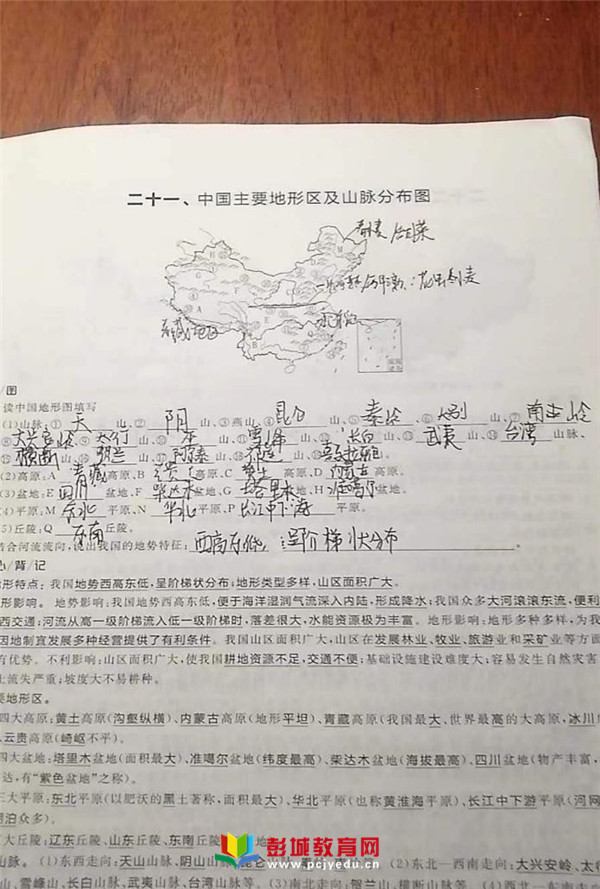 二十一、中国主要地形区及山脉分布图
/图
读中国地形图填写
(1)山脉:① 天 山、② 阴 山、③燕山、④ 昆仑 ⑤ 秦岭 ⑥ 大别 山、⑦ 南岭
⑧ 大兴安岭 ⑨ 太行 山、⑩ 山、 雪峰 山、 长白 山、 武夷 山、 台湾 山脉、
横断 山、 贺兰 山、 山、 山、 喜马拉雅 山。
(2)高原:A 青藏 高原、B 云贵 高原、C 黄土 高原、D 内蒙古 高原。
(3)盆地:E 四川 盆地、F 柴达木 盆地、G 塔里木 盆地、H 准噶尔 盆地。
(4)平原:M 东北 平原、N 华北 平原、P 长江中下游 平原。
5)丘陵:Q 东南 丘陵。
结合河流流向,说出我国的地势特征: 西高东低,呈阶梯状分布 。
心/背/记
形特点:我国地势西高东低,呈阶梯状分布;地形类型多样,山区面积广大。
形影响。 地势影响:我国地势西高东低,便于海洋湿润气流深入内陆,形成降水;我国众多大河滚滚东流,便利
西交通;河流从高一级阶梯流入低一级阶梯时,落差很大,水能资源极为丰富。地形影响:地形多种多样,为我
因地制宜发展多种经营提供了有利条件。我国山区面积广大,山区在发展林业、牧业、旅游业和采矿业等方面
有优势。不利影响:山区面积广大,使我国耕地资源不足,交通不便;基础设施建设难度大;容易发生自然灾害
土流失严重;坡度大不易耕种。
要地形区。
四大高原:黄土高原(沟壑纵横)、内蒙古高原(地形平坦)、青藏高原(我国最大、世界最高的大高原,冰川
、云贵高原(崎岖不平)。
四大盆地:塔里木盆地(面积最大)、准噶尔盆地(纬度最高)、柴达木盆地(海拔最高)、四川盆地(物产丰富,
达,有“紫色盆地”之称)。
三大平原:东北平原(以肥沃的黑土著称,面积最大)、华北平原(也称黄淮海平原)、长江中下游平原(河网
湖泊众多)。
大丘陵:辽东丘陵、山东丘陵、东南丘陵
山脉。 (1)东西走向:天山山脉、阴山山脉、昆仑 (2)东北—西南走向:大兴安岭、太
、雪峰山、长白山、武夷山、台湾山脉等。(3)南北走向:贺兰山、横断山脉等。(4)西
彭城教育网
www.pcjyedu.cn